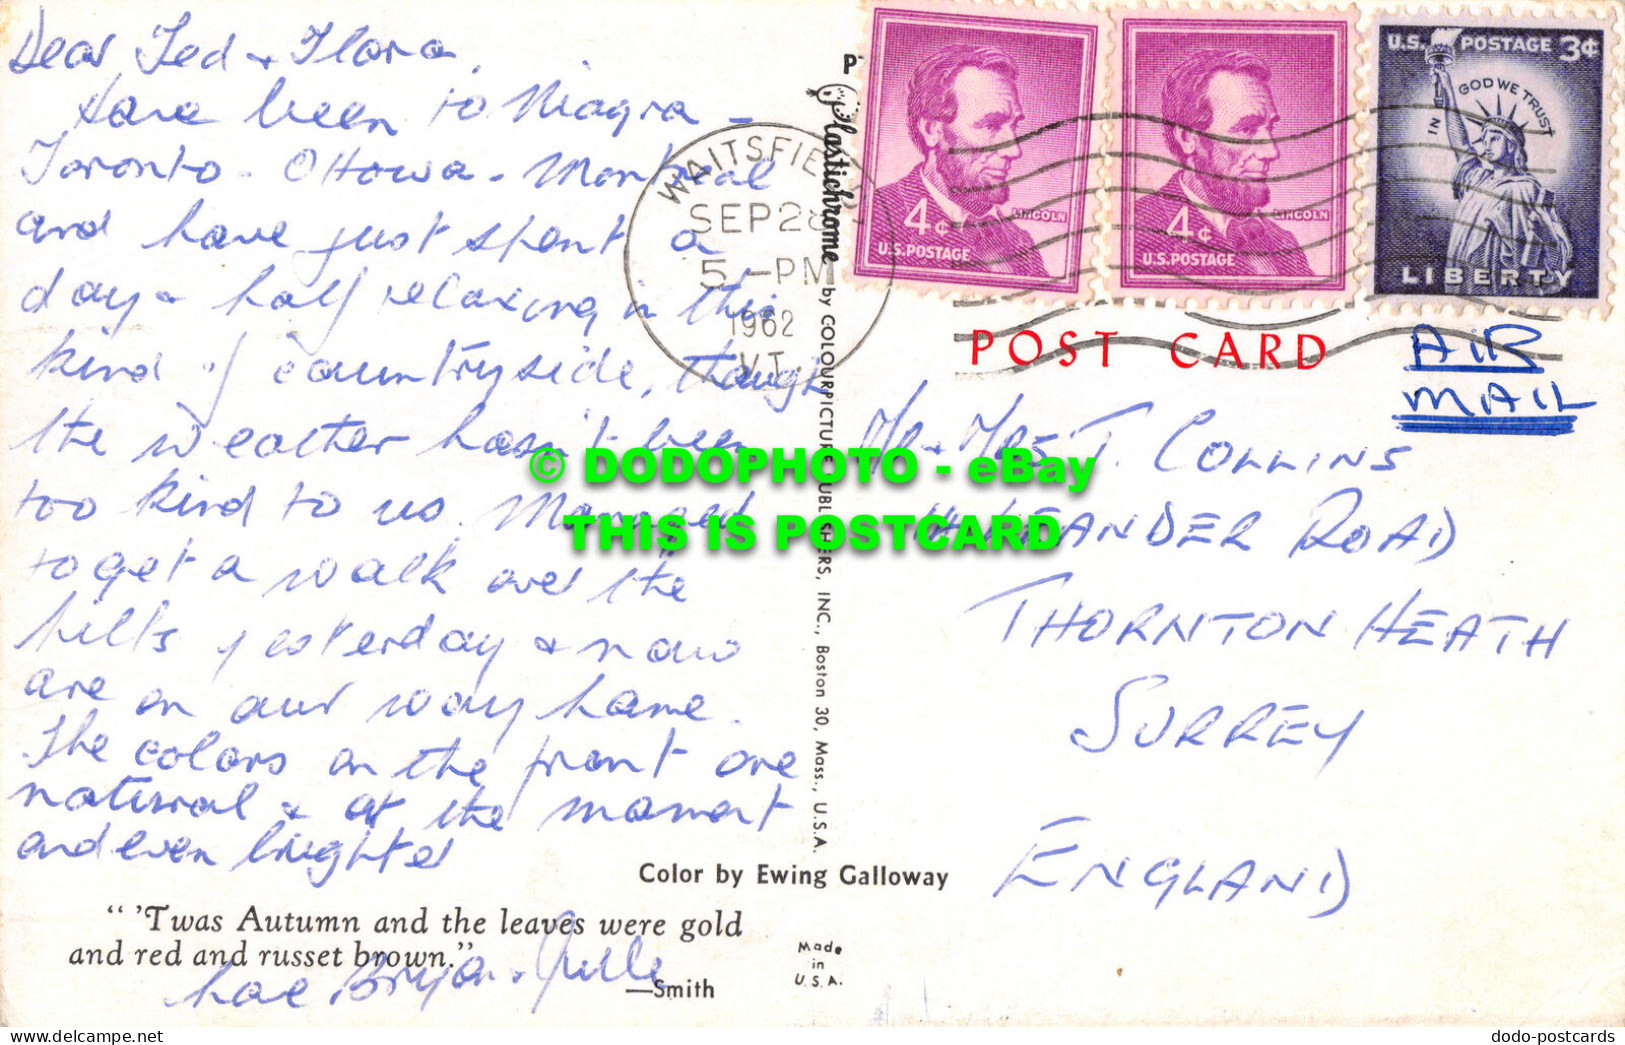 Dear Ted + Flora,
Have been to Niagra -
Toronto - Ottowa - Montreal
and have just spent a
day + half relaxing in this
kind of countryside, though
the weather hasn't been
too kind to us. Managed
to get a walk over the
hills yesterday + now
are on our way home.
The colors on the front are
natural + at the moment
and even brighter
Love Bryan +
"'Twas Autumn and the leaves were gold
and red and russet brown."
—Smith
Color by Ewing Galloway
Made
in
U.S.A.
Plastichrome by COLOURPICTURE PUBLISHERS, INC., Boston 30, Mass., U.S.A.
P
WAITSFIE
SEP 28
5 -PM
1962
VT.
4¢
LINCOLN
U.S. POSTAGE
4¢
LINCOLN
U.S. POSTAGE
U.S. POSTAGE 3¢
IN GOD WE TRUST
LIBERTY
POST CARD
AIR
MAIL
Mr + Mrs T. COLLINS
LEANDER ROAD
THORNTON HEATH
SURREY
ENGLAND
© DODOPHOTO - eBay
THIS IS POSTCARD
delcampe.net
dodo-postcards